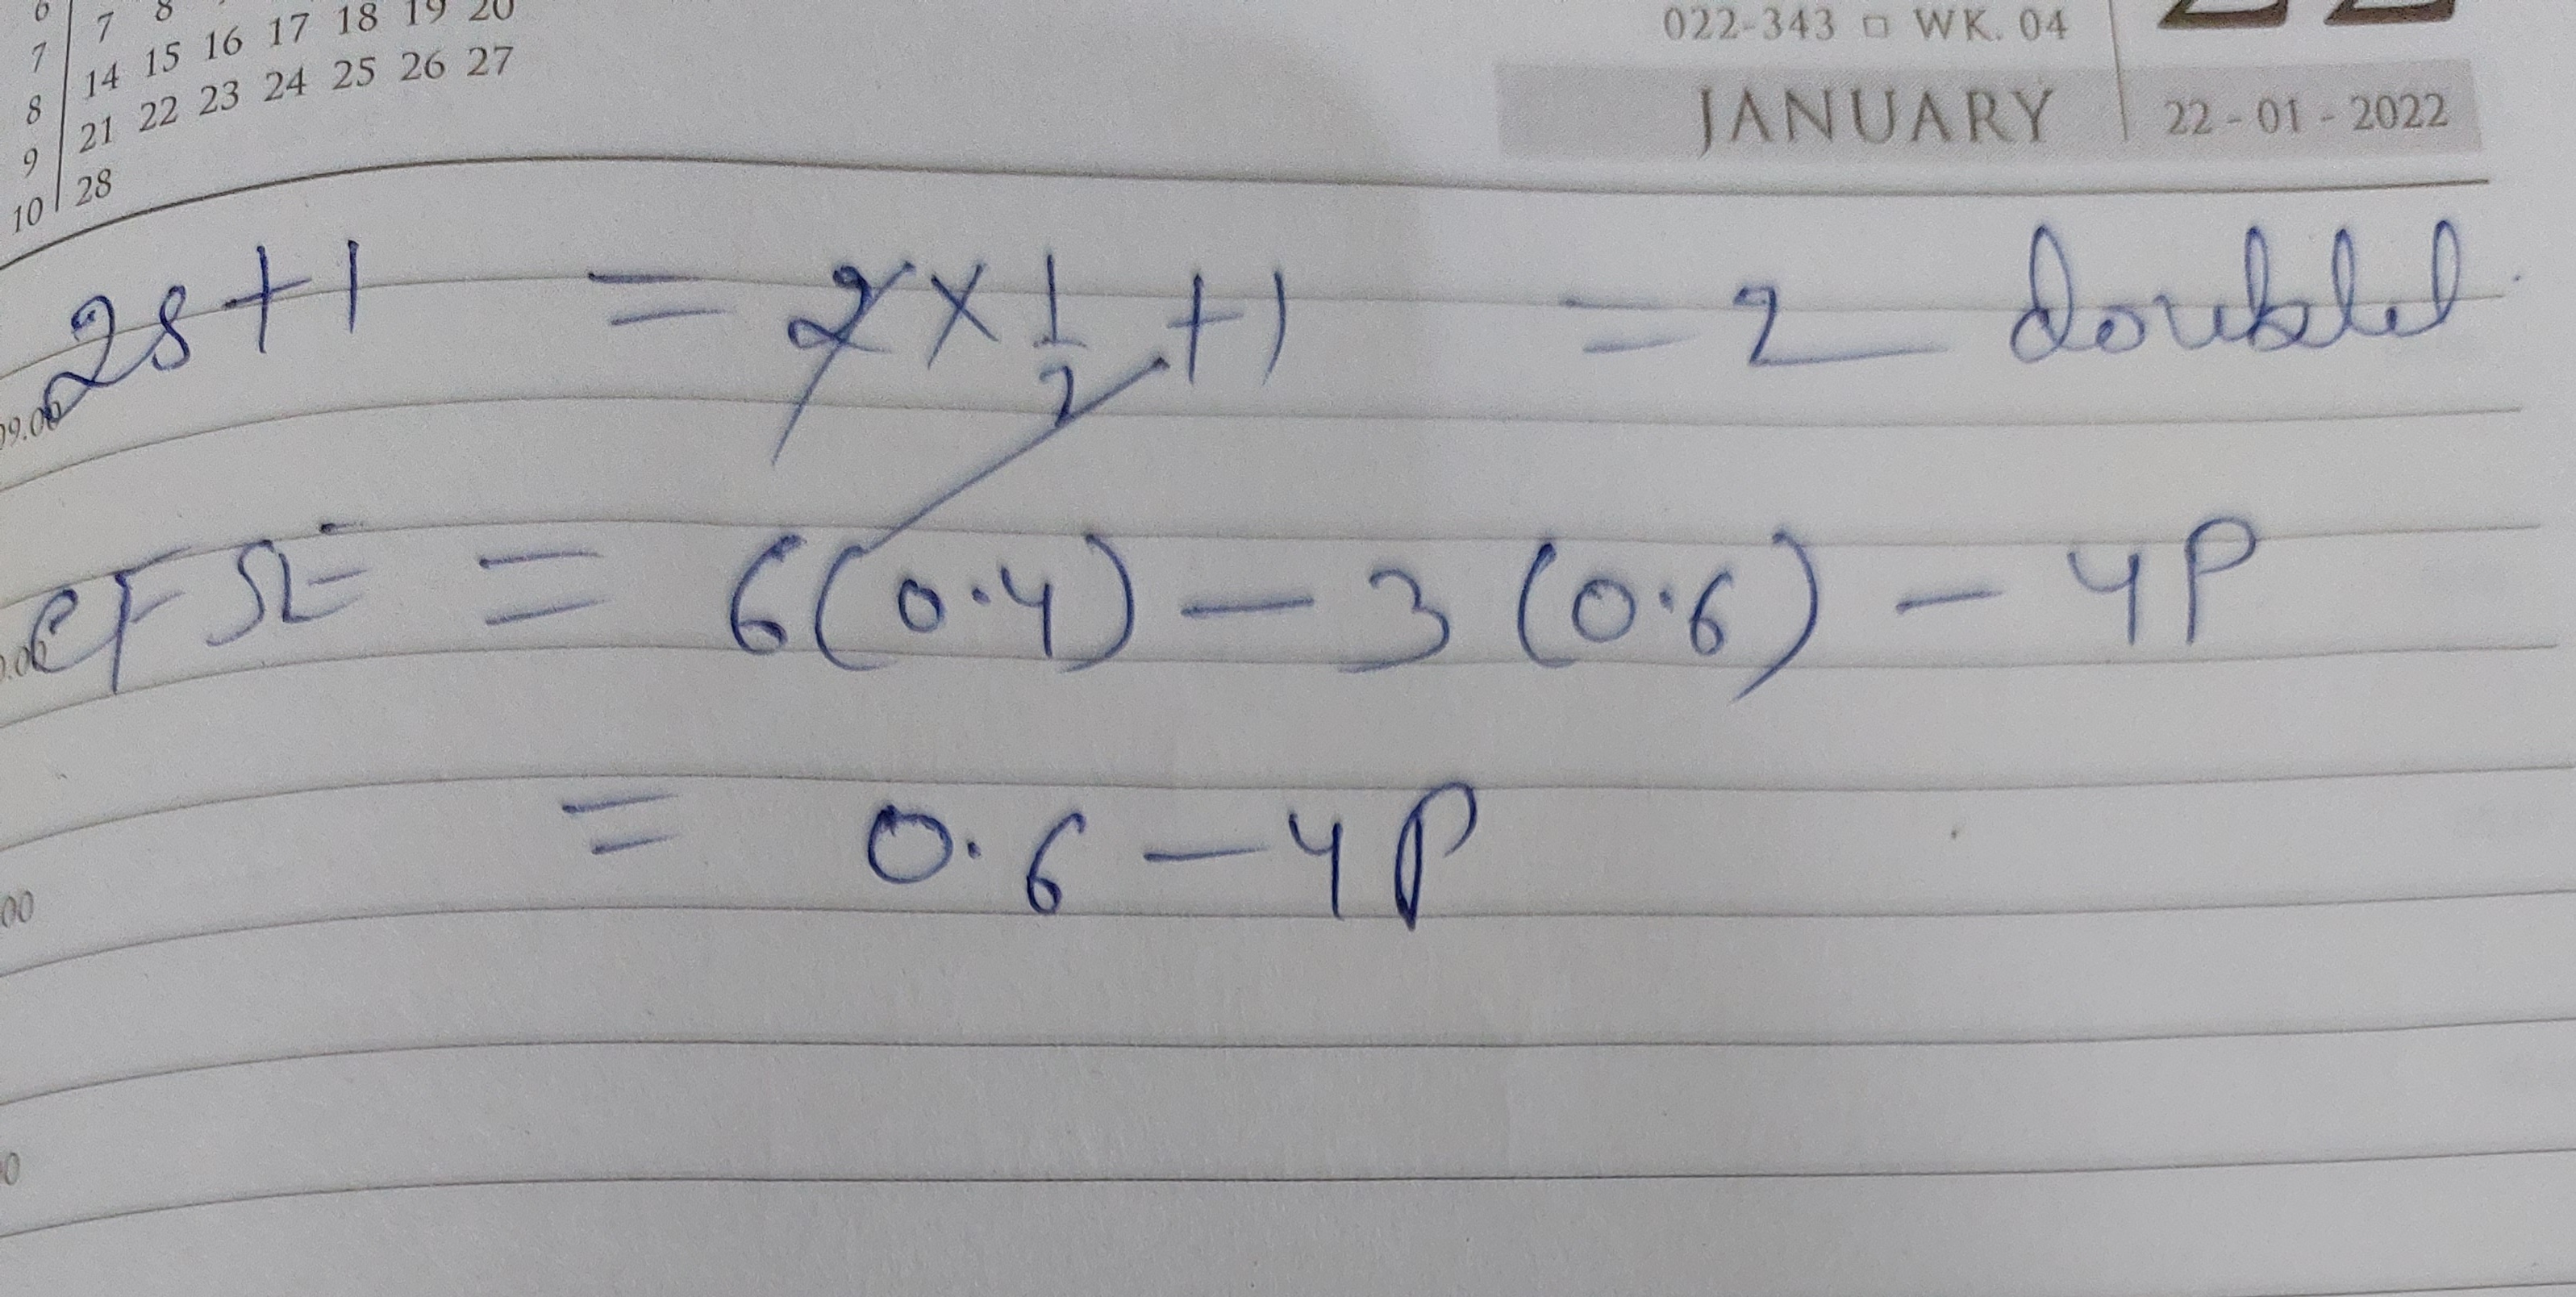 6 7 8
7 14 15 16 17 18 19 20
8 21 22 23 24 25 26 27
9 28
10
022-343 □ WK. 04
JANUARY 22 - 01 - 2022
2s+1 = 2 × 1/2 + 1 = 2 doublet
09.00
CFSE = 6(0.4) - 3(0.6) - 4P
= 0.6 - 4P
00
0